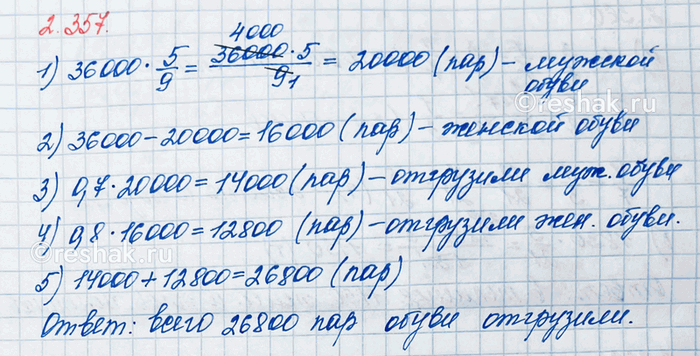 2.357.
4000
1) 36000 · 5/9 = 36000 · 5 / 9 1 = 20000 (пар) – мужской
обуви
2) 36000 – 20000 = 16000 (пар) – женской обуви
3) 0,7 · 20000 = 14000 (пар) – отгрузили муж. обуви
4) 0,8 · 16000 = 12800 (пар) – отгрузили жен. обуви.
5) 14000 + 12800 = 26800 (пар)
Ответ: всего 26800 пар обуви отгрузили.
©reshak.ru
©reshak.ru
©reshak.ru